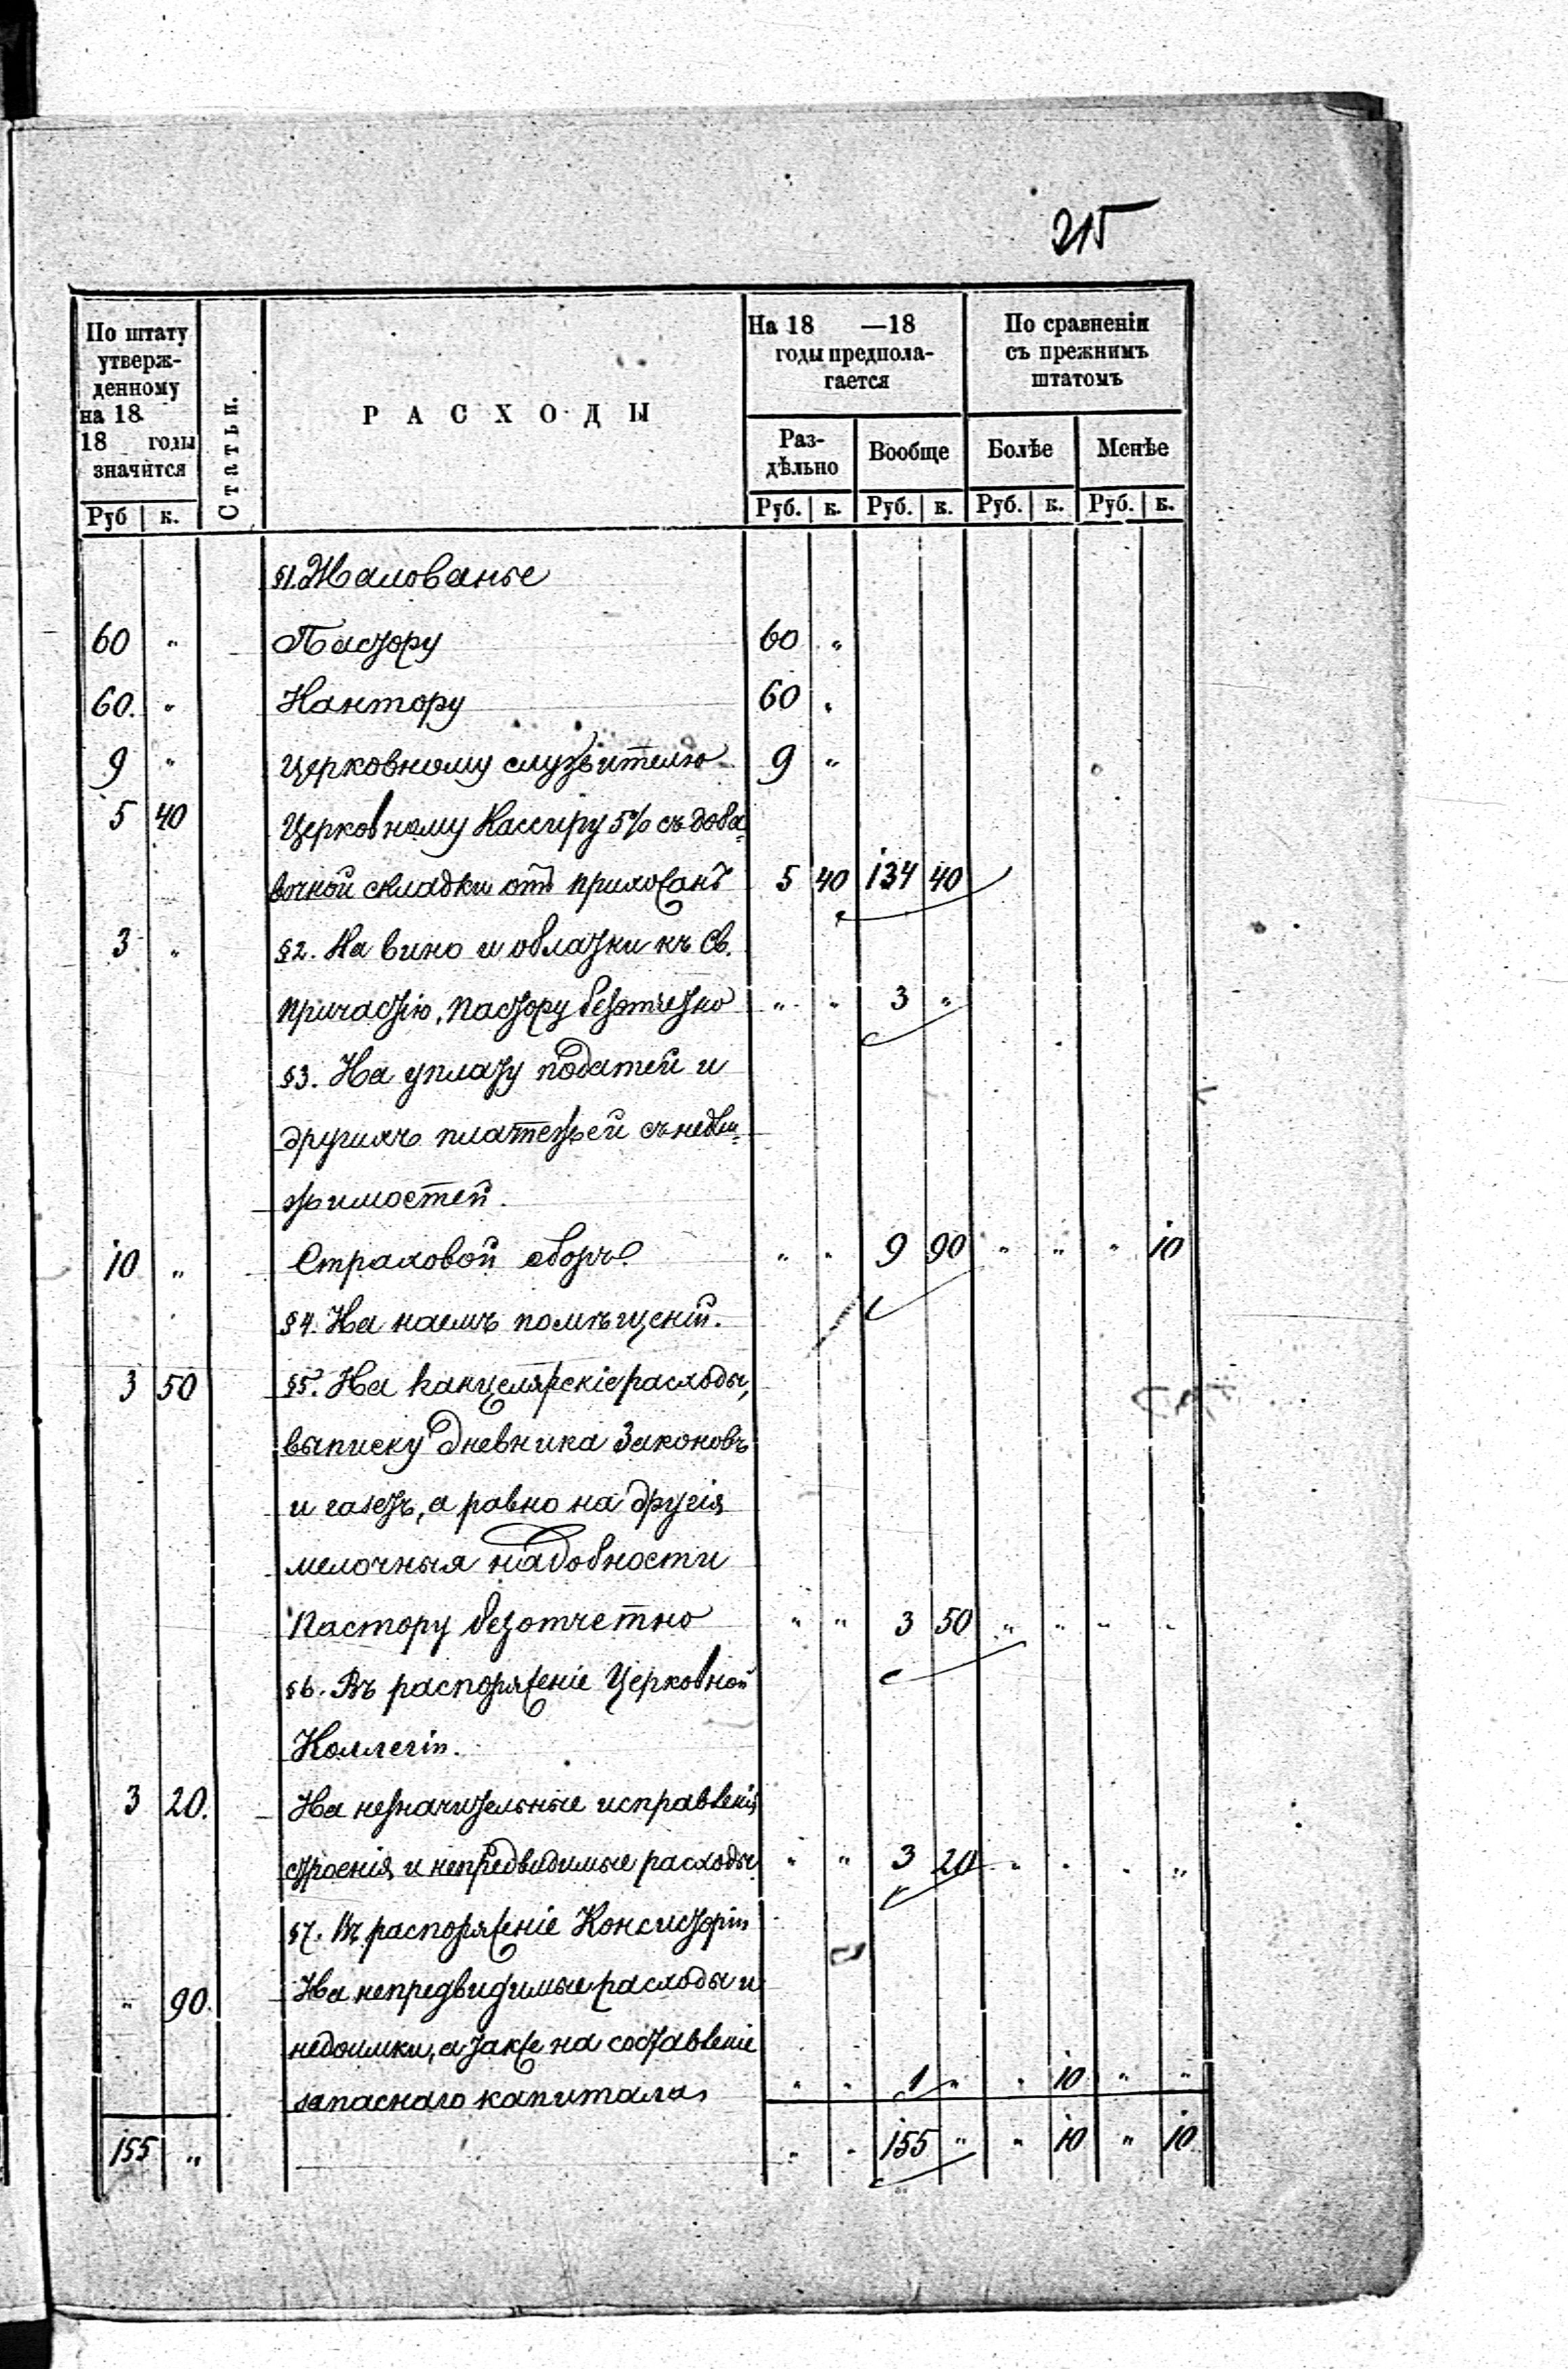 215
По штату утверж- денному на 18 18 годы значится
Статьи.
РАСХОДЫ
На 18 —18 годы предпола- гается
По сравненію съ прежнимъ штатомъ
Раз- дѣльно
Вообще
Болѣе
Менѣе
Руб к. Руб. к. Руб. к. Руб. к. Руб. к.
§1. Жалованье
60 " Пастору 60 "
60. " Кантору 60 "
9 " Церковному служителю 9 "
5 40 Церковному Кассиру 5% съ доба-
вочной складки отъ прихожанъ 5 40 134 40
3 " §2. На вино и облатки къ Св.
Причастію, Пастору безотчетно " " 3 "
§3. На уплату податей и
другихъ платежей съ недви-
жимостей.
10 " Страховой сборъ " " 9 90 " " " 10
§4. На наемъ помѣщеній.
3 50 §5. На канцелярскіе расходы,
выписку Дневника Законовъ
и газетъ, а равно на другія
мелочныя надобности
Пастору безотчетно " " 3 50 " " " "
§6. Въ распоряженіе Церковной
Коллегіи.
3 20. На незначительные исправленія
строенія и непредвидимые расходы " " 3 20 " " " "
§7. Въ распоряженіе Консисторіи
" 90. На непредвидимые расходы и
недоимки, а также на составленіе
запаснаго капитала " " 1 " " 10 " "
155 " " " 155 " " 10 " 10